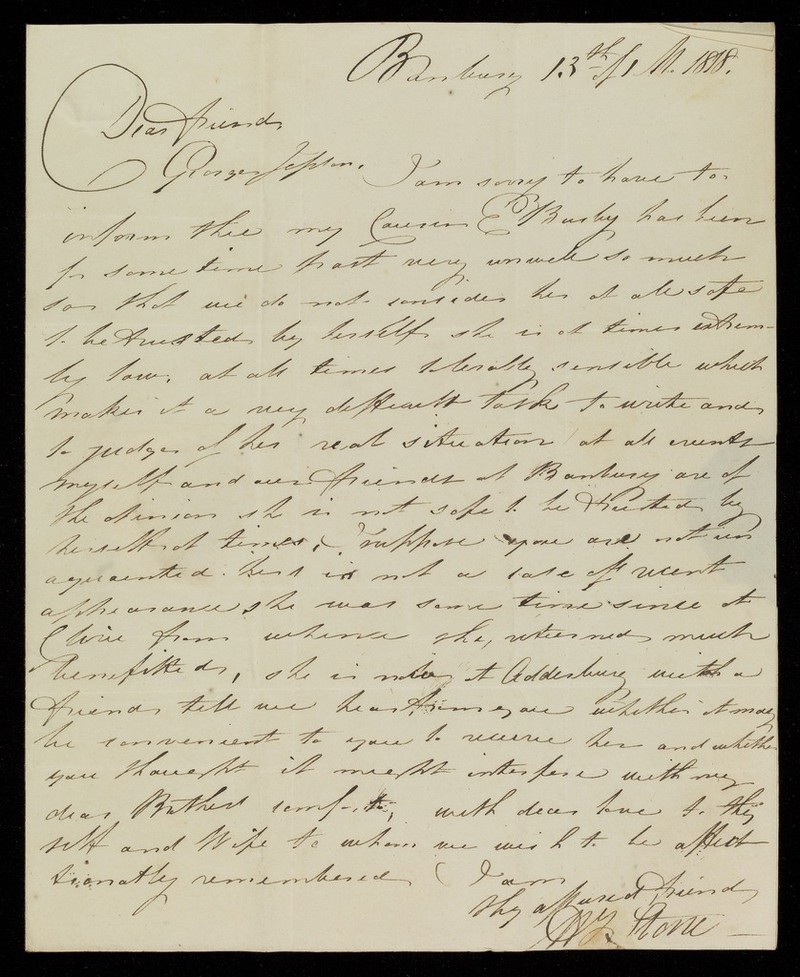 Banbury 13th of 1 M. 1818.
Dear friend
George Jepson. I am sorry to have to
inform thee my Cousin E Busby has been
for some time past very unwell so much
so that we do not consider her at all safe
to be trusted by herself she is at times extrem-
ly low, at all times tolerably sensible which
makes it a very difficult task to write and
to judge of her real situation at all events
myself and our friends at Banbury are of
the opinion she is not safe to be trusted by
herself at times, I suppose you are not un
aquainted hers is not a case of recent
appearance, she was some time since at
from whence she, returned much
benefitted, she is now at Adderbury with a
friend till we hear from you whether it may
be convenient to you to receive her and whether
you thought it might interfere with my
dear Brothers comfort, with dear love to thy
self and Wife to whom we wish to be affect
tionatly remembered I am
thy assured friend
Stone